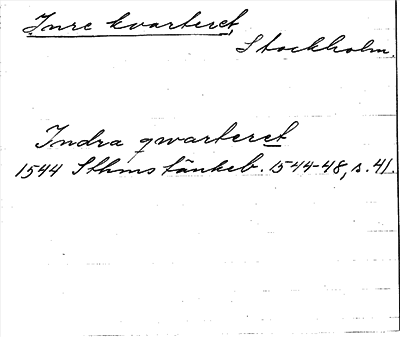 Inre kvarteret,
Stockholm.
Indra qwarteret
1544 Sthms tänkeb. 1544-48, s. 41.